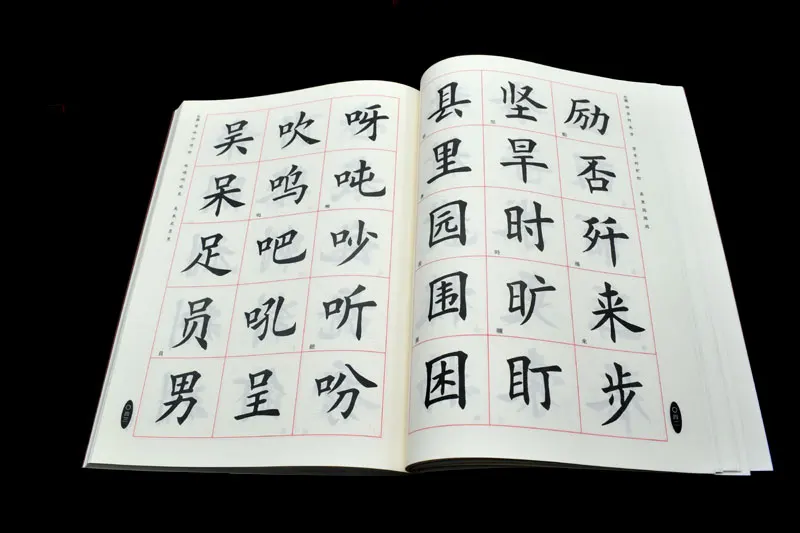 励否歼来步
坚旱时旷盯
县里园围困
〇四一
呀吨吵听吩
吹呜吧吼呈
吴呆足员男
〇四二